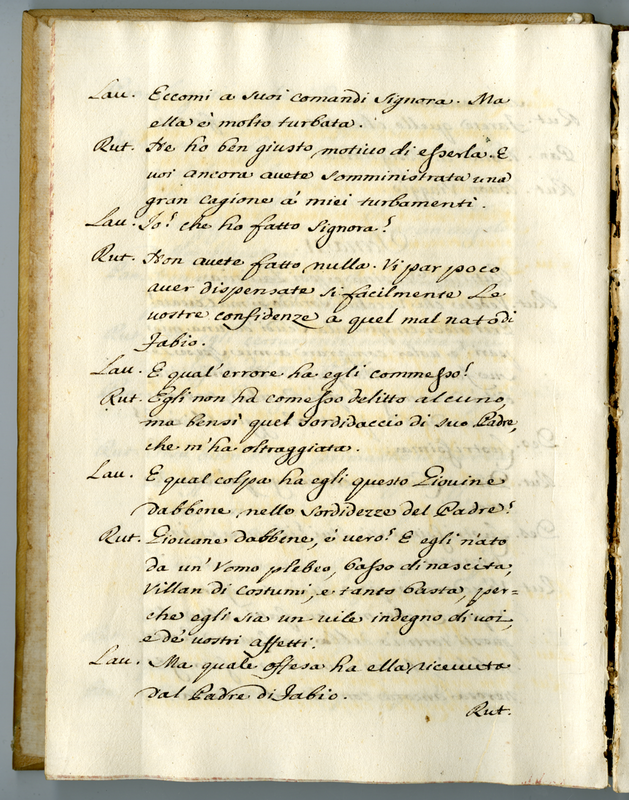 Lau. Eccomi a suoi comandi Signora. Ma
ella è molto turbata.
Rut. Ne ho ben giusto motivo di esserla. E
voi ancora avete somministrata una
gran cagione a' miei turbamenti.
Lau. Io? che ho fatto Signora?
Rut. Non avete fatto nulla. Vi par poco
aver dispensate si facilmente Le
vostre confidenze a quel mal nato di
Fabio.
Lau. E qual' errore ha egli commesso?
Rut. Egli non ha comesso delitto alcuno,
ma bensì quel sordidaccio di suo Padre,
che m'ha oltraggiata.
Lau. E qual colpa ha egli questo Giovine
dabbene, nelle sordidezze del Padre?
Rut. Giovane dabbene, è vero? E egli nato
da un' Vomo plebeo, basso di nascita,
Villan di Costumi, e tanto basta, per=
che egli sia un vile indegno di voi,
e de' vostri affetti.
Lau. Ma quale offesa ha ella ricevuta
dal Padre di Fabio.
Rut.